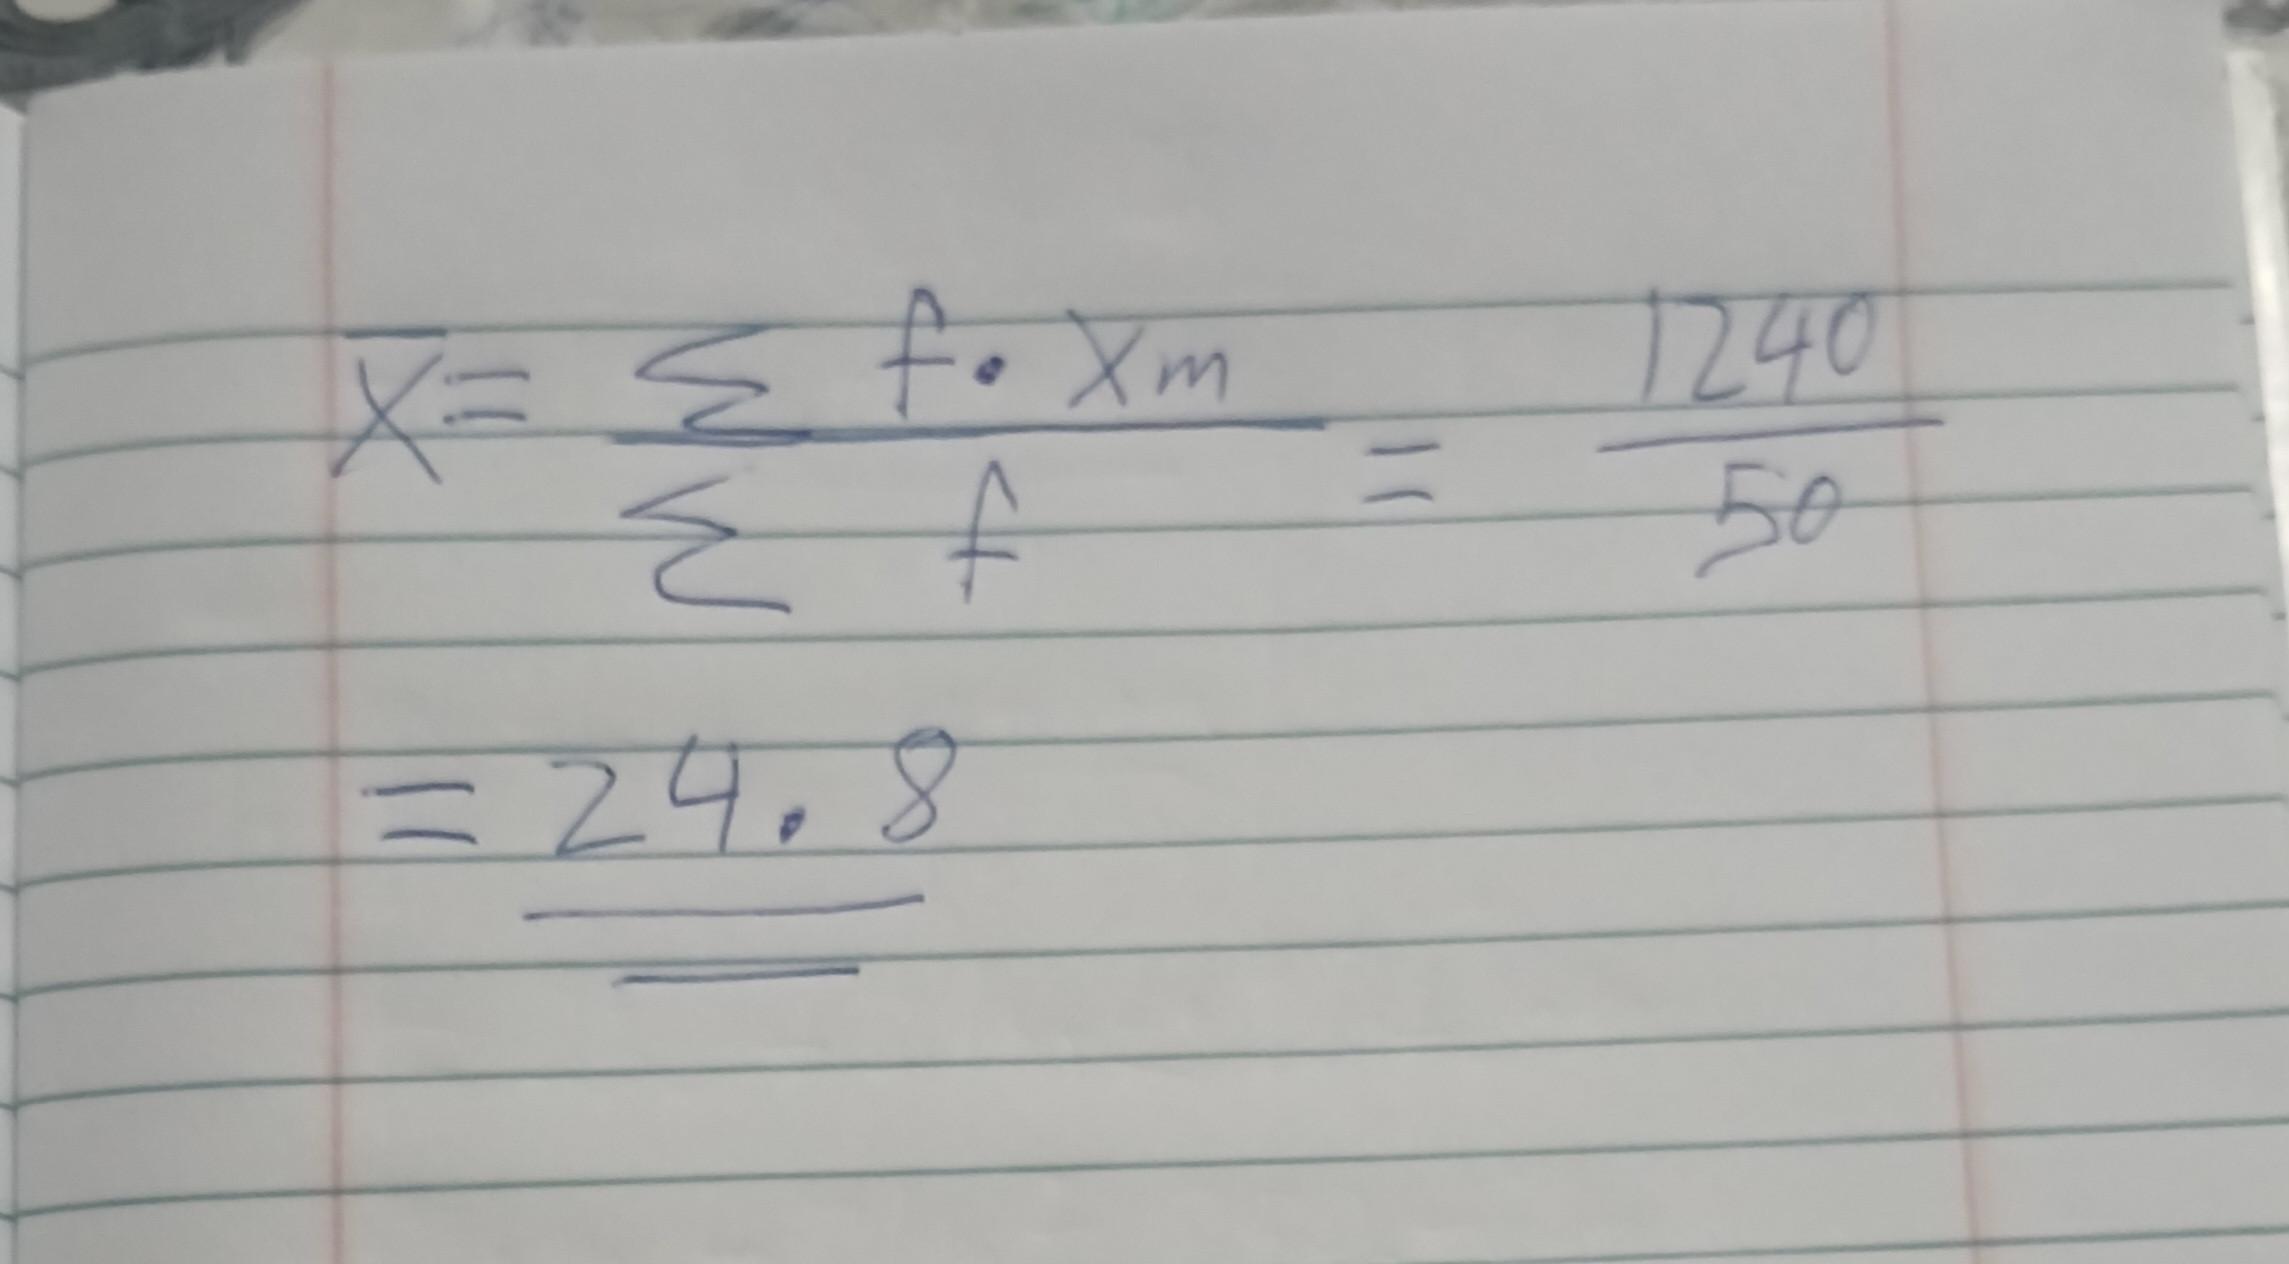 X̄ = Σ f · Xm / Σ f = 1240 / 50
= 24.8